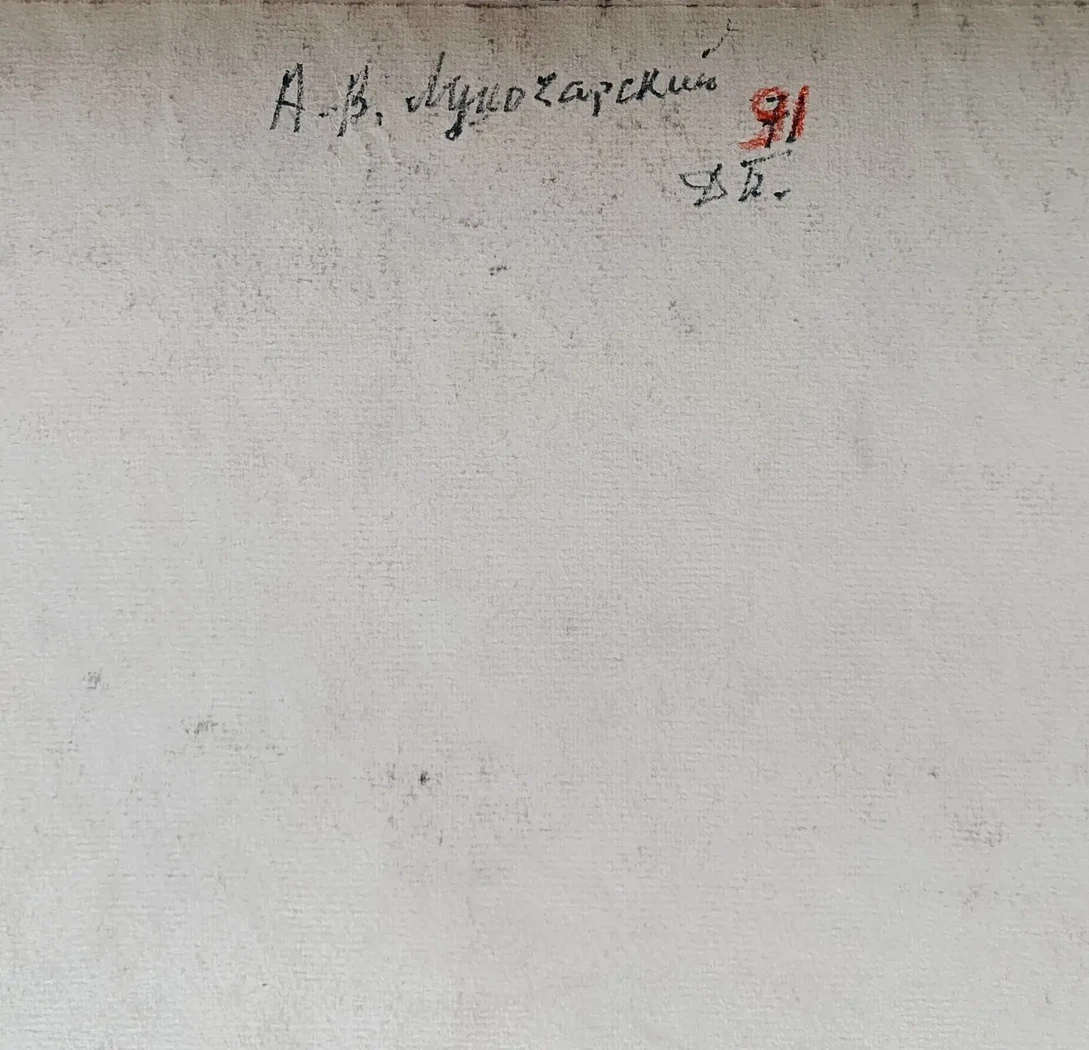 А.В. Луначарский
91